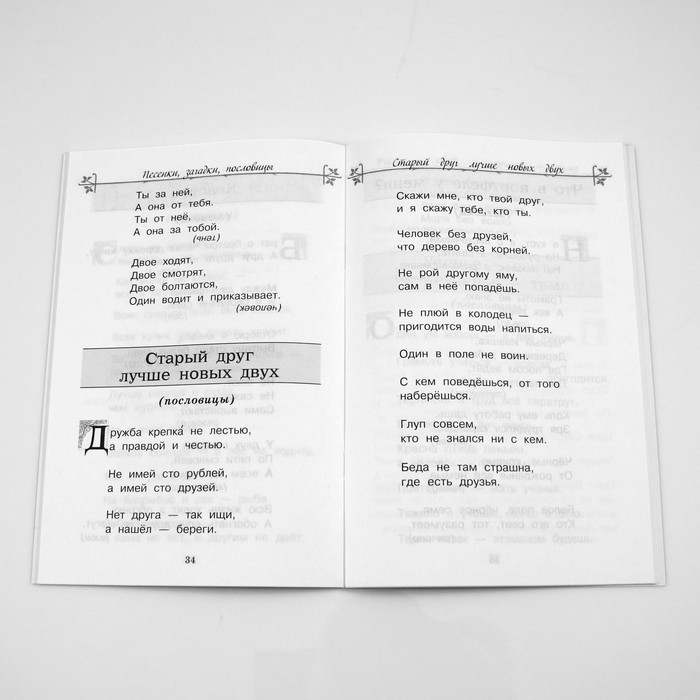 Песенки, загадки, пословицы
Ты за ней,
А она от тебя.
Ты от неё,
А она за тобой.
(тень)
Двое ходят,
Двое смотрят,
Двое болтаются,
Один водит и приказывает.
(человек)
Старый друг
лучше новых двух
(пословицы)
Дружба крепка́ не лестью,
а правдой и честью.
Не имей сто рублей,
а имей сто друзей.
Нет друга — так ищи,
а нашёл — береги.
34
Старый друг лучше новых двух
Скажи мне, кто твой друг,
и я скажу тебе, кто ты.
Человек без друзей,
что дерево без корней.
Не рой другому яму,
сам в неё попадёшь.
Не плюй в колодец —
пригодится воды напиться.
Один в поле не воин.
С кем поведёшься, от того
наберёшься.
Глуп совсем,
кто не знался ни с кем.
Беда не там страшна,
где есть друзья.